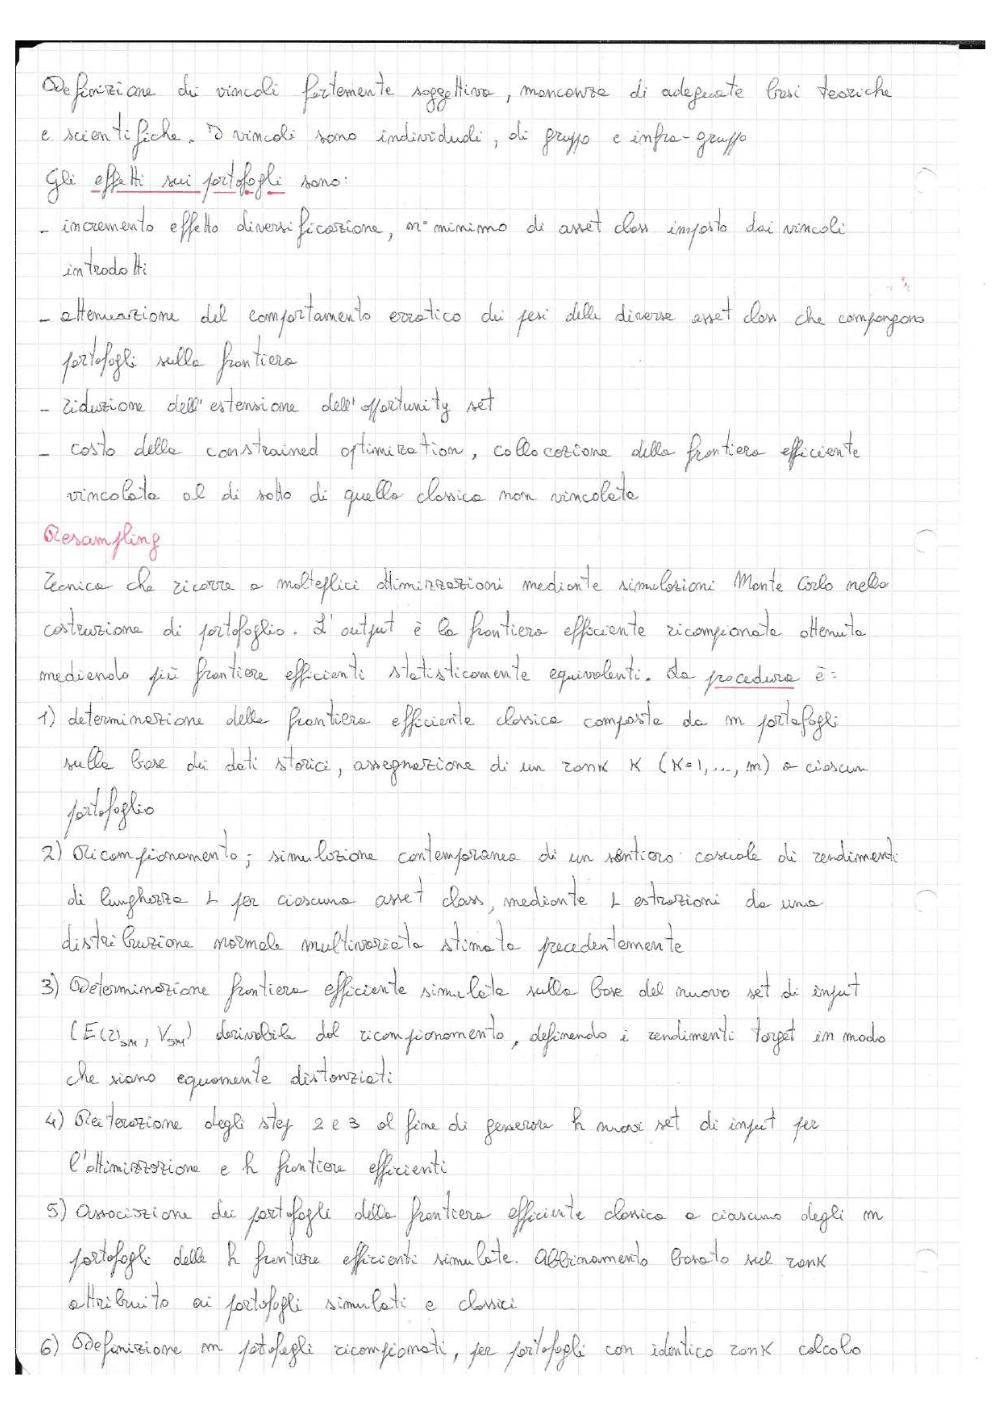 Definizione dei vincoli fortemente soggettiva, mancanza di adeguate basi teoriche
e scientifiche. I vincoli sono individuali, di gruppo e infra-gruppo
Gli effetti sui portafogli sono:
- incremento effetto diversificazione, n° minimo di asset class imposto dai vincoli
introdotti
- attenuazione del comportamento erratico dei pesi delle diverse asset class che compongono
portafogli sulla frontiera
- riduzione dell'estensione dell'opportunity set
- costo della constrained optimization, collocazione della frontiera efficiente
vincolata al di sotto di quella classica non vincolata
Resampling
Tecnica che ricorre a molteplici ottimizzazioni mediante simulazioni Monte Carlo nella
costruzione di portafoglio. L'output è la frontiera efficiente ricampionata ottenuta
mediando più frontiere efficienti statisticamente equivalenti. La procedura è:
1) determinazione della frontiera efficiente classica composta da m portafogli
sulla base dei dati storici, assegnazione di un rank K (K=1, ..., m) a ciascun
portafoglio
2) Ricampionamento; simulazione contemporanea di un sentiero casuale di rendimenti
di lunghezza L per ciascuna asset class, mediante L estrazioni da una
distribuzione normale multivariata stimata precedentemente
3) Determinazione frontiera efficiente simulata sulla base del nuovo set di input
(E(r)SM, VSM) derivabile dal ricampionamento, definendo i rendimenti target in modo
che siano equamente distanziati
4) Reiterazione degli step 2 e 3 al fine di generare h nuovi set di input per
l'ottimizzazione e h frontiere efficienti
5) Associazione dei portafogli della frontiera efficiente classica a ciascuno degli m
portafogli delle h frontiere efficienti simulate. Abbinamento basato sul rank
attribuito ai portafogli simulati e classici
6) Definizione m potafogli ricampionati, per portafogli con identico rank calcolo